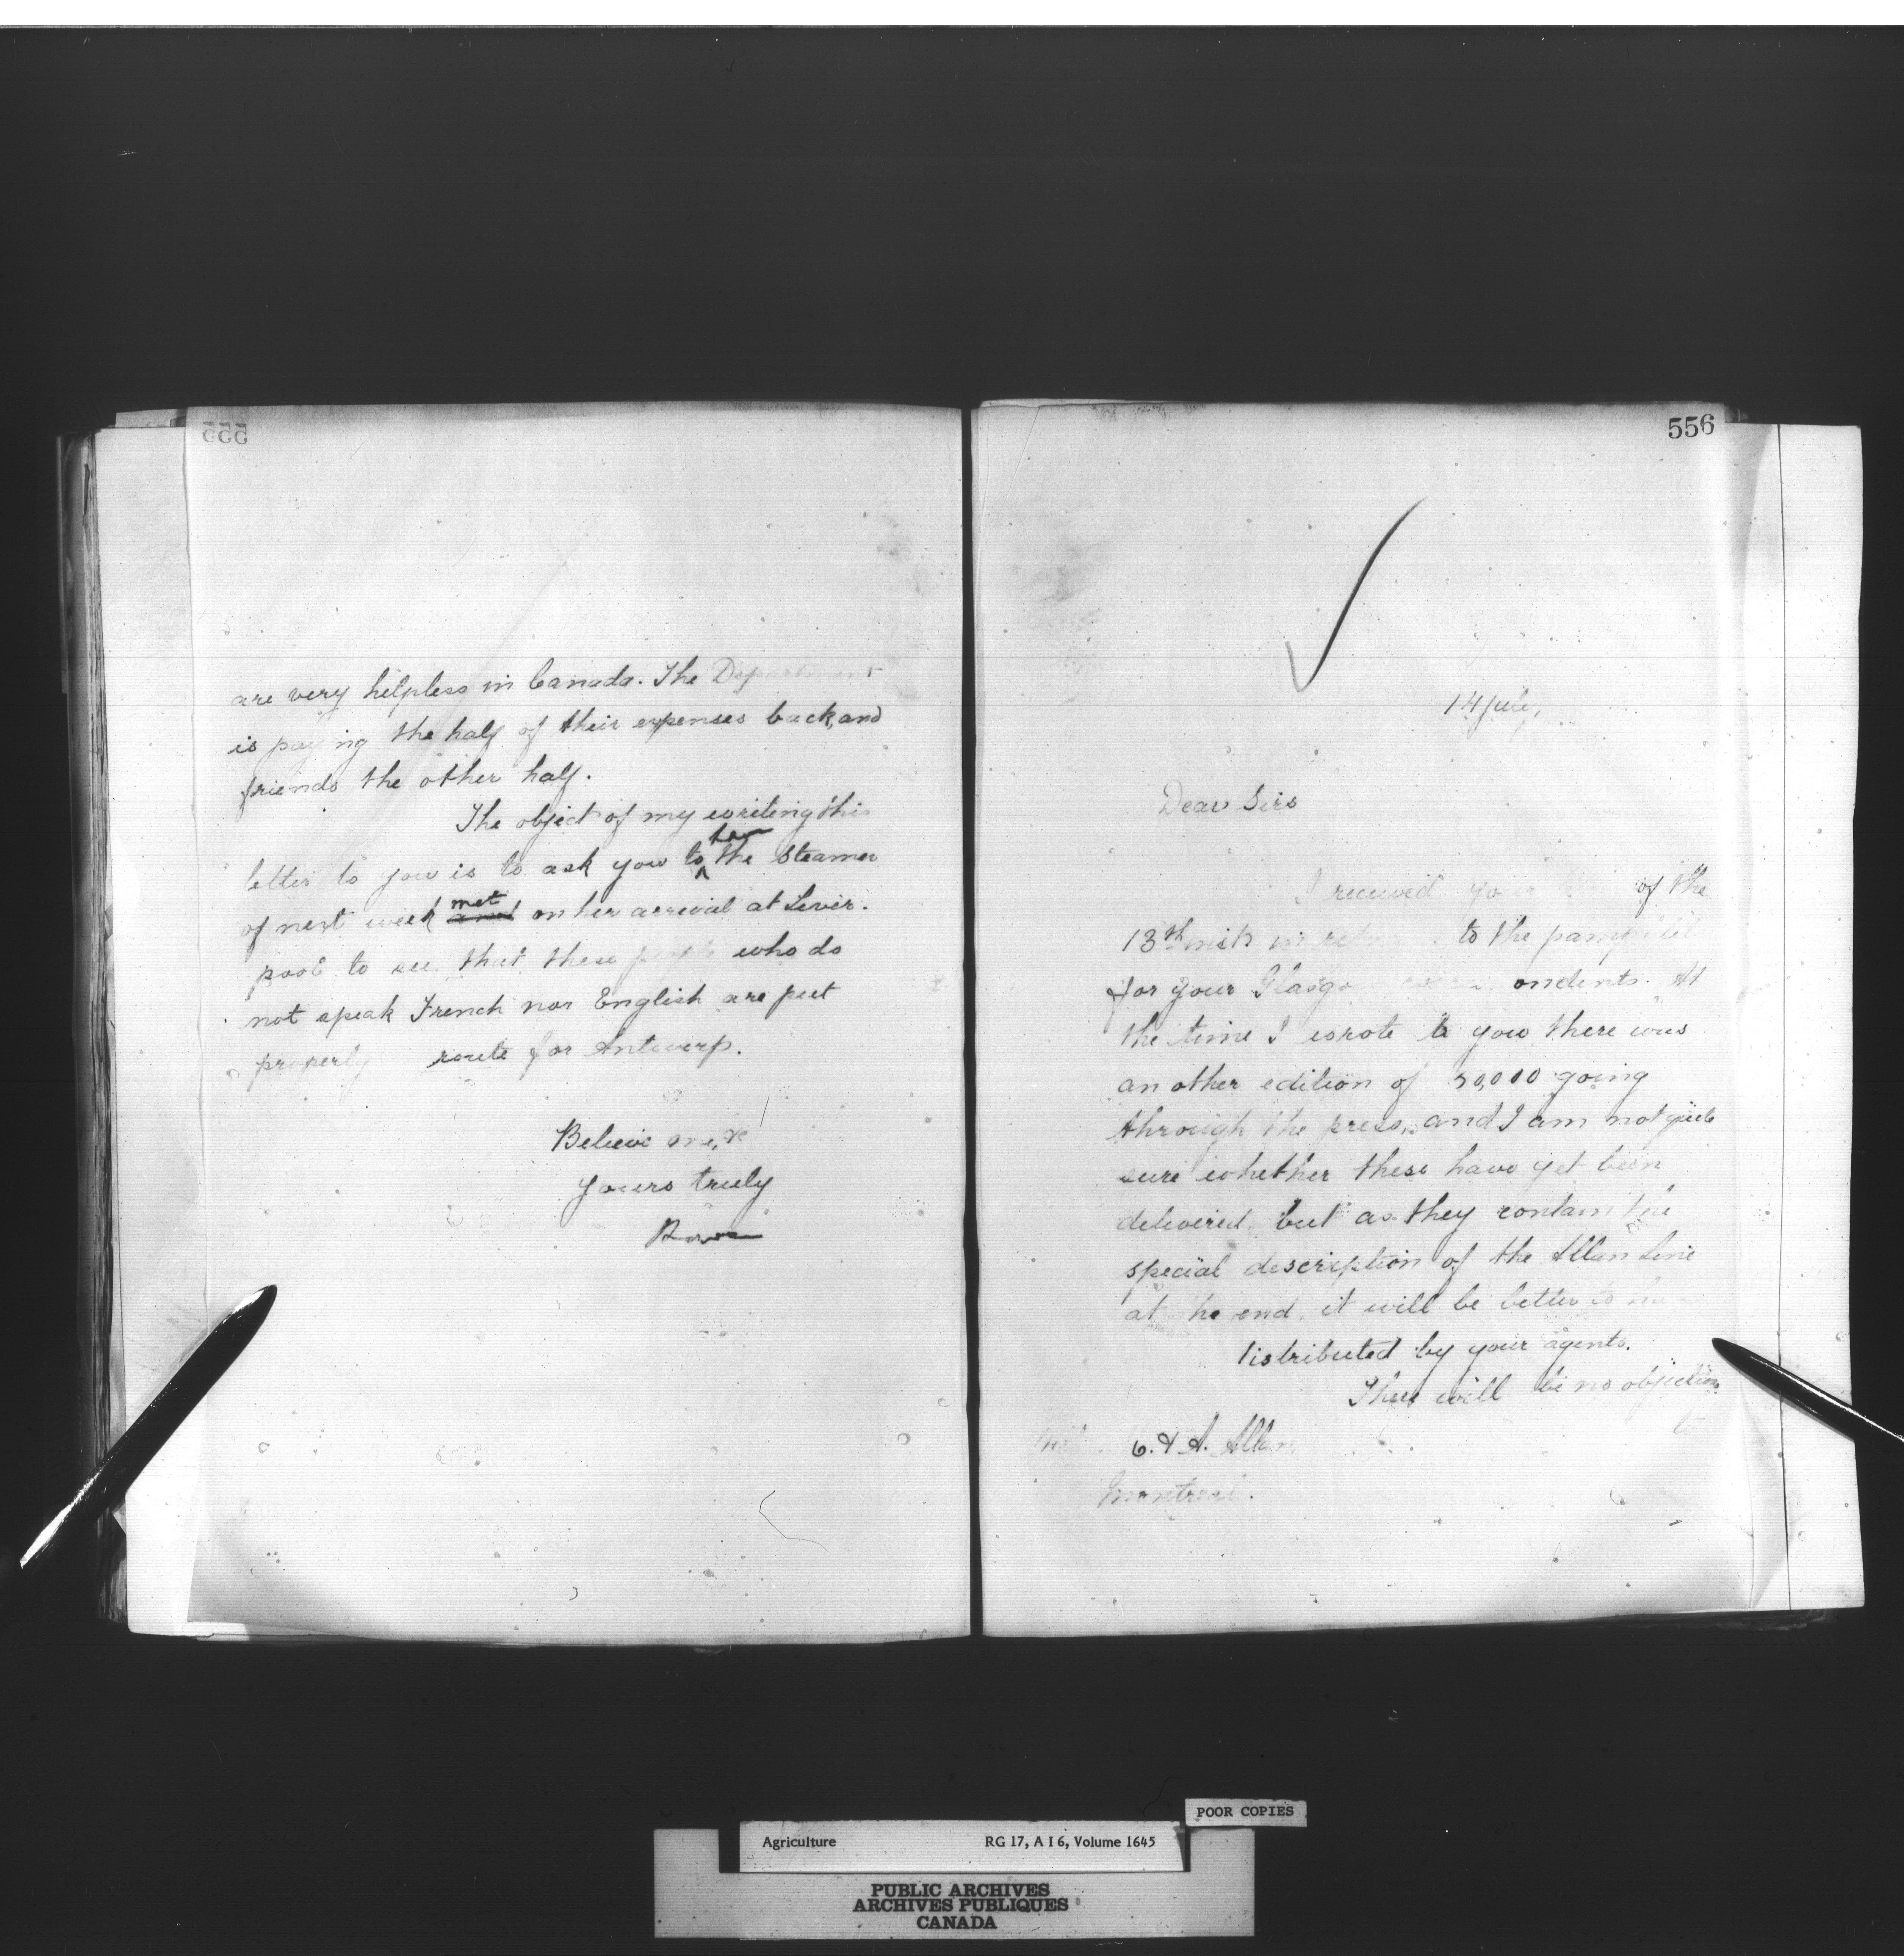 555
are very helpless in Canada. The Department
is paying the half of their expenses back, and
friends the other half.
The object of my writing this
letter to you is to ask you to have the steamer
of next week met and on her arrival at Liver-
pool to see that these people who do
not speak French nor English are put
properly route for Antwerp.
Believe me, &c
yours truly
556
14 July,
Dear Sirs
I received your of the
13th inst in to the pamphlet
for your Glasgow correspondents. At
the time I wrote to you there was
another edition of 50,000 going
through the press, and I am not quite
sure whether these have yet been
delivered, but as they contain the
special description of the Allan Line
at the end, it will be better to
distributed by your agents.
There will be no objection
to
& A. Allan
Montreal.
POOR COPIES
Agriculture RG 17, A I 6, Volume 1645
PUBLIC ARCHIVES
ARCHIVES PUBLIQUES
CANADA